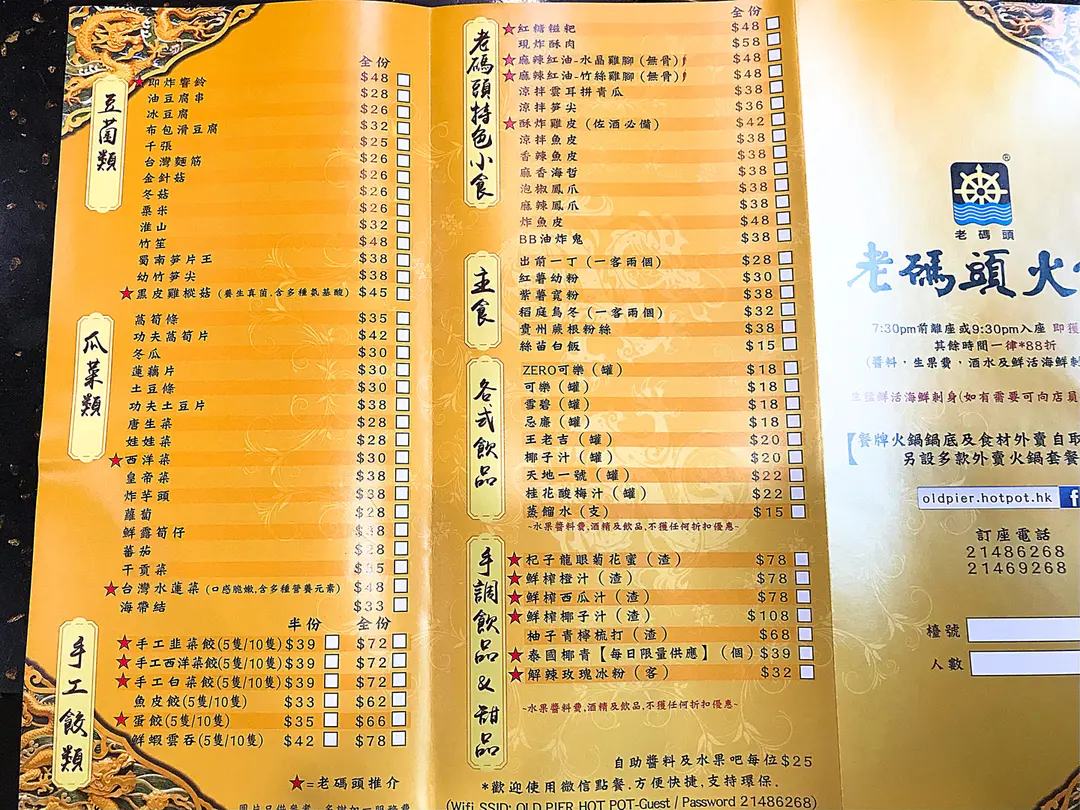 豆菌類
全份
★即炸響鈴 $48
油豆腐串 $28
冰豆腐 $26
布包滑豆腐 $32
千張 $25
台灣麵筋 $26
金針菇 $26
冬菇 $26
粟米 $26
淮山 $32
竹笙 $48
蜀南笋片王 $38
幼竹笋尖 $38
★黑皮雞樅菇 (養生真菌,含多種氨基酸) $45
瓜菜類
萵筍條 $35
功夫萵筍片 $42
冬瓜 $30
蓮藕片 $30
土豆條 $30
功夫土豆片 $38
唐生菜 $28
娃娃菜 $28
★西洋菜 $30
皇帝菜 $38
炸芋頭 $38
蘿蔔 $28
鮮露筍仔 $38
蕃茄 $28
干貢菜 $35
★台灣水蓮菜 (口感脆嫩,含多種營養元素) $48
海帶結 $33
手工餃類
半份 全份
★手工韭菜餃(5隻/10隻) $39 $72
★手工西洋菜餃(5隻/10隻) $39 $72
★手工白菜餃(5隻/10隻) $39 $72
魚皮餃(5隻/10隻) $33 $62
★蛋餃(5隻/10隻) $35 $66
鮮蝦雲吞(5隻/10隻) $42 $78
★=老碼頭推介
老碼頭特色小食
全份
★紅糖糍粑 $48
現炸酥肉 $58
★麻辣紅油-水晶雞腳 (無骨) $48
★麻辣紅油-竹絲雞腳 (無骨) $48
涼拌雲耳拼青瓜 $38
涼拌笋尖 $36
★酥炸雞皮 (佐酒必備) $42
涼拌魚皮 $38
香辣魚皮 $38
麻香海哲 $38
泡椒鳳爪 $38
麻辣鳳爪 $38
炸魚皮 $48
BB油炸鬼 $38
主食
出前一丁 (一客兩個) $28
紅薯幼粉 $30
紫薯寬粉 $38
稻庭烏冬 (一客兩個) $32
貴州蕨根粉絲 $38
絲苗白飯 $15
各式飲品
ZERO可樂 (罐) $18
可樂 (罐) $18
雪碧 (罐) $18
忌廉 (罐) $18
王老吉 (罐) $20
椰子汁 (罐) $20
天地一號 (罐) $22
桂花酸梅汁 (罐) $22
蒸餾水 (支) $15
~水果醬料費,酒精及飲品,不獲任何折扣優惠~
手調飲品&甜品
★杞子龍眼菊花蜜 (渣) $78
★鮮榨橙汁 (渣) $78
★鮮榨西瓜汁 (渣) $78
★鮮榨椰子汁 (渣) $108
柚子青檸梳打 (渣) $68
★泰國椰青【每日限量供應】 (個) $39
★解辣玫瑰冰粉 (客) $32
~水果醬料費,酒精及飲品,不獲任何折扣優惠~
自助醬料及水果吧每位$25
*歡迎使用微信點餐,方便快捷,支持環保.
(Wifi SSID: OLD PIER HOT POT-Guest / Password 21486268)
®
老碼頭
老碼頭火
7:30pm前離座或9:30pm入座 即獲
其餘時間一律*88折
(醬料,生果費,酒水及鮮活海鮮刺
生猛鮮活海鮮刺身(如有需要可向店員
【餐牌火鍋鍋底及食材外賣自取
另設多款外賣火鍋套餐
oldpier.hotpot.hk
訂座電話
21486268
21469268
檯號
人數